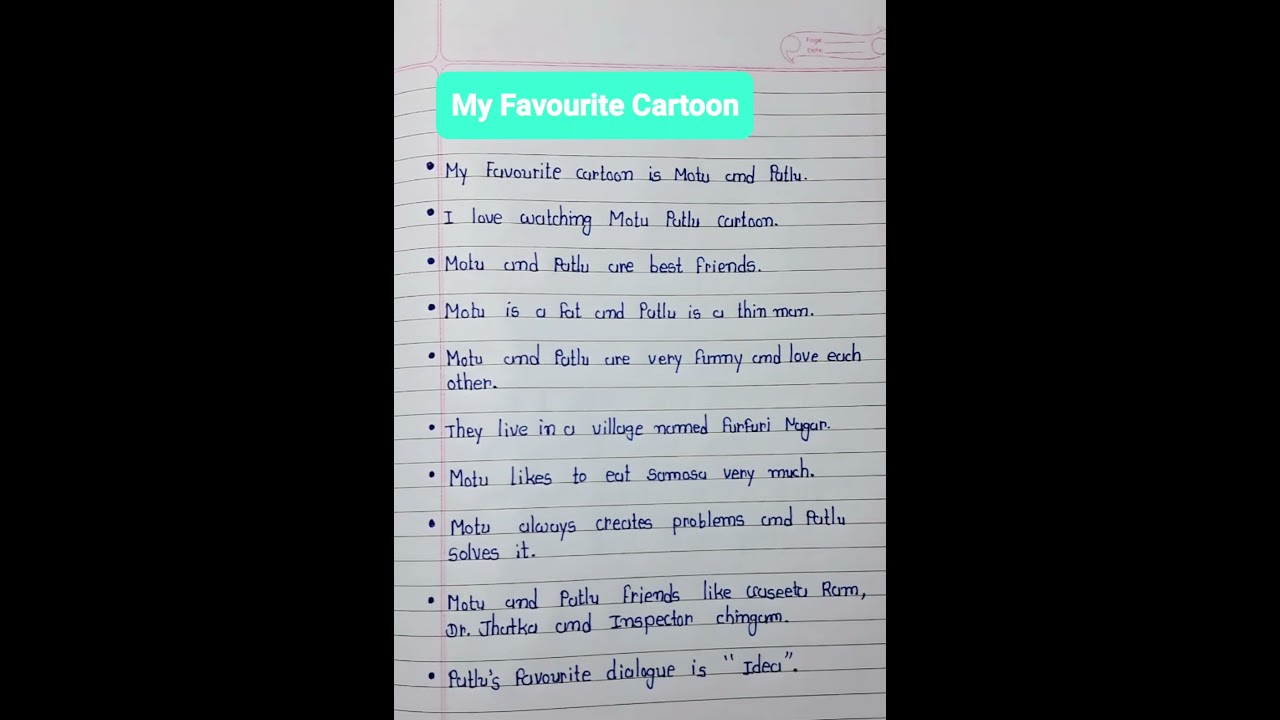 Page:
Date:
My Favourite Cartoon
• My Favourite cartoon is Motu and Patlu.
• I love watching Motu Patlu cartoon.
• Motu and Patlu are best friends.
• Motu is a fat and Patlu is a thin man.
• Motu and Patlu are very funny and love each
other.
• They live in a village named Furfuri Nagar.
• Motu likes to eat Samosa very much.
• Motu always creates problems and Patlu
solves it.
• Motu and Patlu friends like Gaseeta Ram,
Dr. Jhatka and Inspector chingam.
• Patlu's favourite dialogue is "Idea".